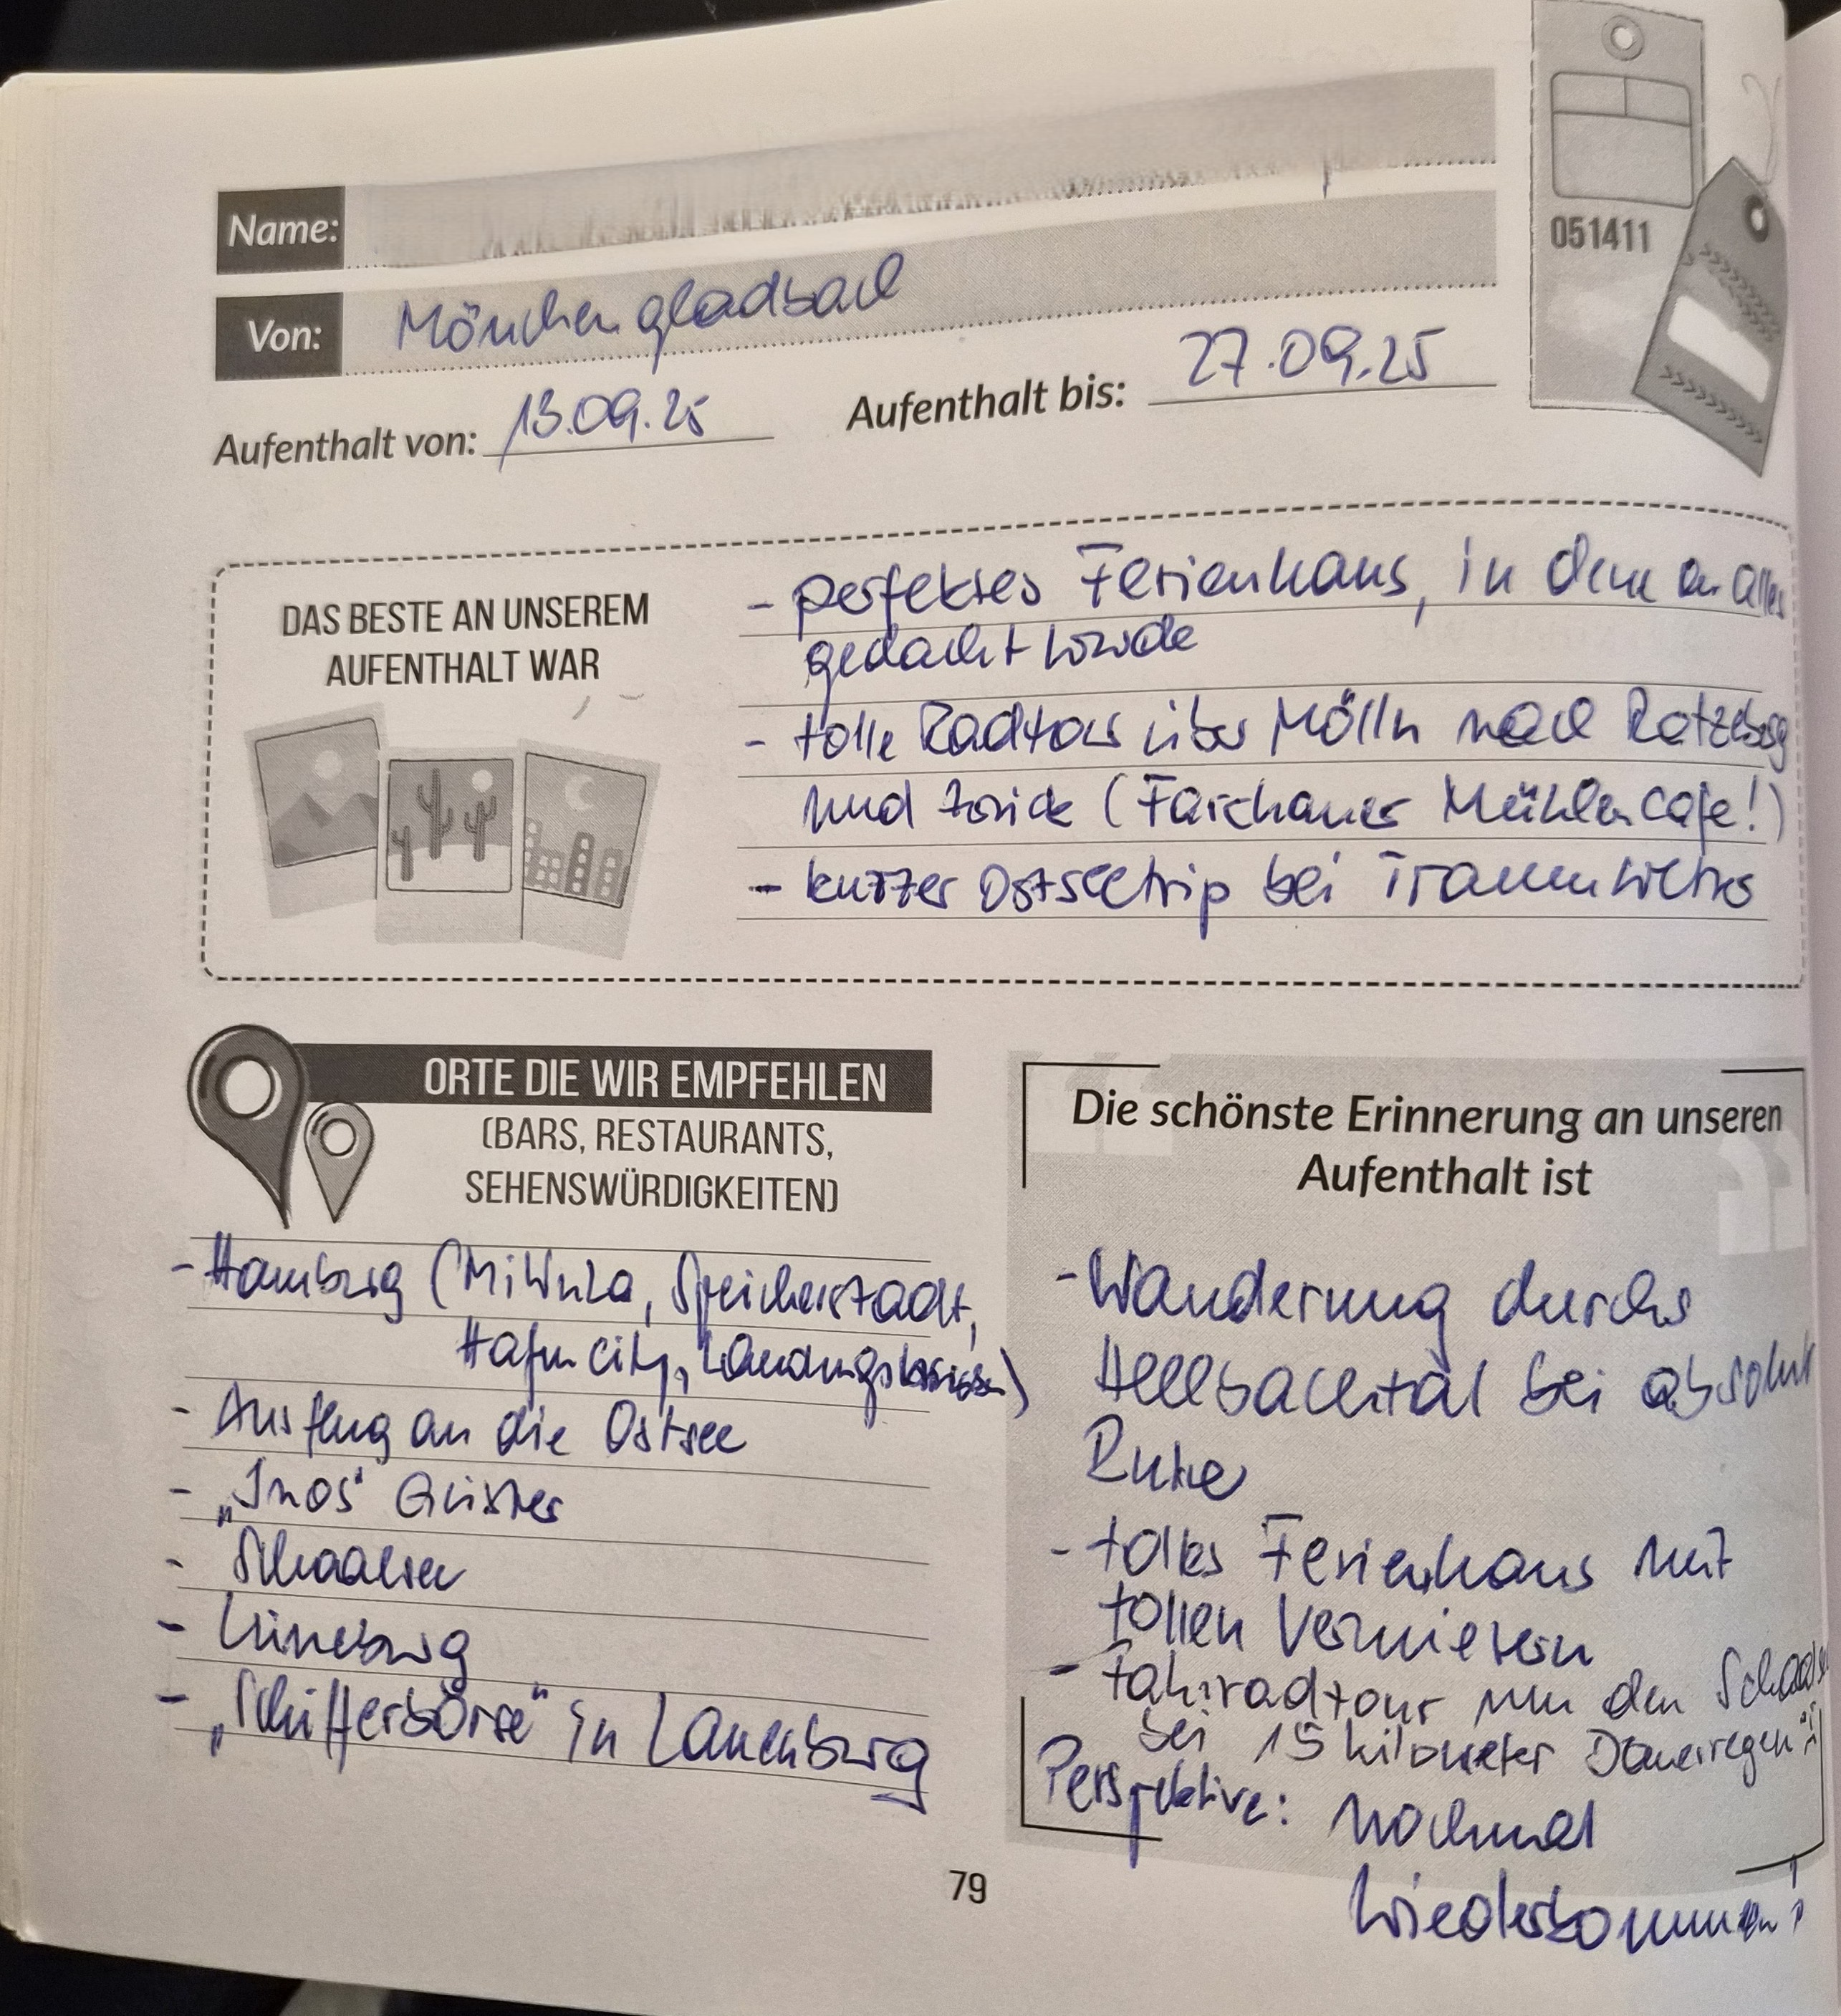 051411
Name:
Von: Mönchengladbach
Aufenthalt von: 13.09.25 Aufenthalt bis: 27.09.25
DAS BESTE AN UNSEREM
AUFENTHALT WAR
- perfektes Ferienhaus, in dem an alles
gedacht wurde
- tolle Radtour über Mölln nach Ratzeburg
und zurück (Farchauer Mühlencafe!)
- kurzer Ostseetrip bei Traumwetter
ORTE DIE WIR EMPFEHLEN
(BARS, RESTAURANTS,
SEHENSWÜRDIGKEITEN)
- Hamburg (MiWuLa, Speicherstadt,
Hafencity, Landungsbrücken)
- Ausflug an die Ostsee
- „Inos" Güster
- Schaalsee
- Lüneburg
- „Schifferbörse" in Lauenburg
Die schönste Erinnerung an unseren
Aufenthalt ist
- Wanderung durchs
Hellbachtal bei absoluter
Ruhe
- tolles Ferienhaus mit
tollen Vermietern
- Fahrradtour um den Schaalsee
bei 15 Kilometer Dauerregen
Perspektive: nochmal
wiederkommen!
79